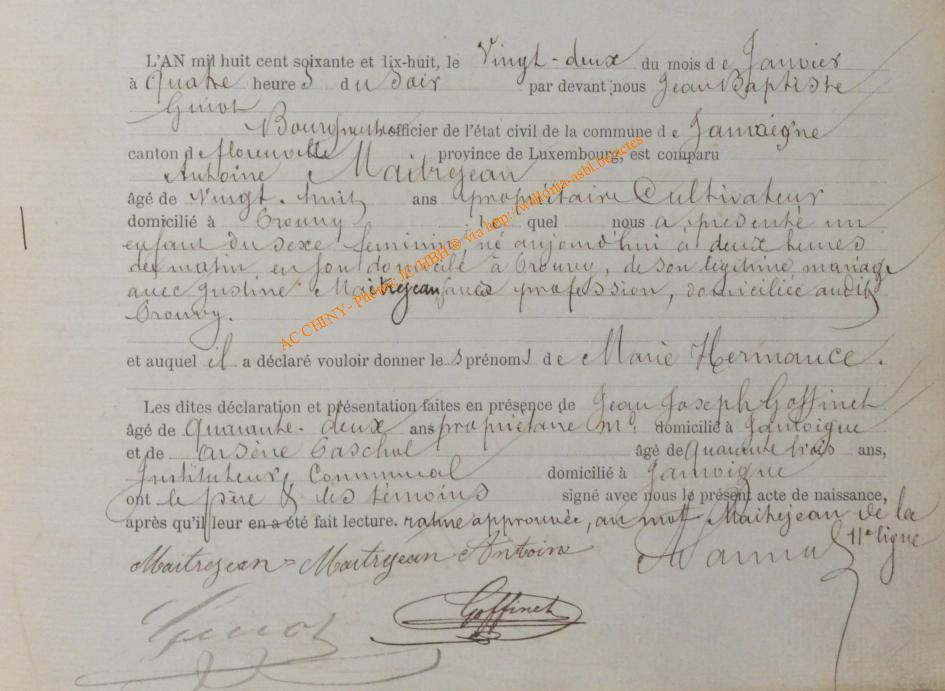 L'AN mil huit cent soixante et dix-huit, le Vingt-deux du mois de Janvier
à Quatre heures du Soir par devant nous Jean Baptiste
Guiot
Bourgmestre officier de l'état civil de la commune de Jamoigne
canton de florenville province de Luxembourg, est comparu
Antoine Maitrejean
âgé de Vingt-huit ans propriétaire Cultivateur
domicilié à lequel nous a présenté un
enfant du sexe féminin, né aujourd'hui à deux heures
du matin, en son domicile à de son légitime mariage
avec Justine Maitrejean sans profession, domiciliée audit
et auquel il a déclaré vouloir donner les prénoms de Marie Hermance.
Les dites déclaration et présentation faites en présence de Jean Joseph Goffinet
âgé de Quarante-deux ans propriétaire domicilié à Jamoigne
et de Arsène âgé de Quarante trois ans,
Instituteur Communal domicilié à Jamoigne
ont le père & les témoins signé avec nous le présent acte de naissance,
après qu'il leur en a été fait lecture. rature approuvée, au mot Maitrejean de la
11e ligne
Maitrejean = Maitrejean Antoine
Guiot Goffinet
AC CHINY - Photos JC/HBH® via http://wallonia-asbl.be/actes